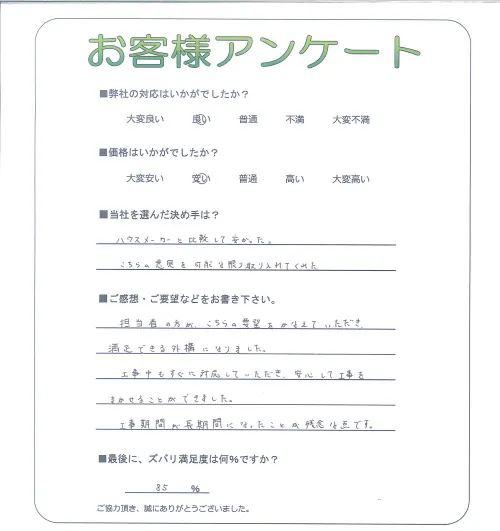 お客様アンケート
■弊社の対応はいかがでしたか？
大変良い 良い 普通 不満 大変不満
■価格はいかがでしたか？
大変安い 安い 普通 高い 大変高い
■当社を選んだ決め手は？
ハウスメーカーと比較して安かった。
こちらの意見を可能な限り取り入れてくれた
■ご感想・ご要望などをお書き下さい。
担当者の方が、こちらの要望をかなえていただき、
満足できる外構になりました。
工事中もすぐに対応していただき、安心して工事を
まかせることができました。
工事期間が長期間になったことが残念な点です。
■最後に、ズバリ満足度は何%ですか？
85 %
ご協力頂き、誠にありがとうございました。